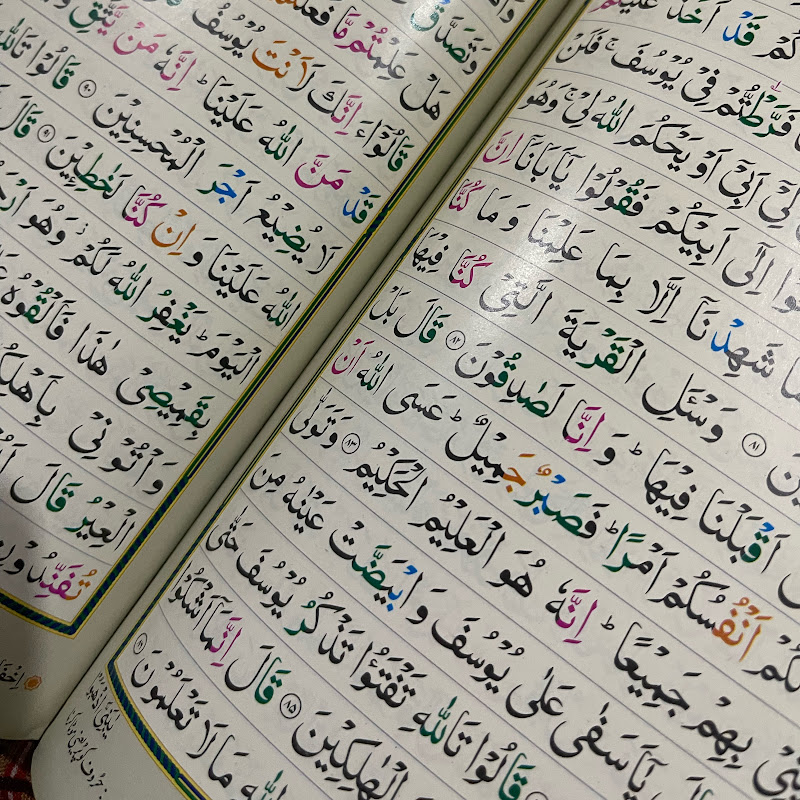 قَدْ اَخَذَ عَلَيْكُمْ
فَرَّطْتُّمْ فِیْ یُوْسُفَ ۚ فَلَنْ
لِیْۤ اَبِیْۤ اَوْ یَحْكُمَ اللّٰهُ لِیْ ۚ وَهُوَ
اِلٰۤی اَبِیْكُمْ فَقُوْلُوْا یٰۤاَبَانَاۤ اِنَّ
شَهِدْنَاۤ اِلَّا بِمَا عَلِمْنَا وَ مَا كُنَّا
۸۱ وَسْـَٔلِ الْقَرْیَةَ الَّتِیْ كُنَّا فِیْهَا
اَقْبَلْنَا فِیْهَا ؕ وَ اِنَّا لَصٰدِقُوْنَ ۸۲ قَالَ بَلْ
لَكُمْ اَنْفُسُكُمْ اَمْرًا ؕ فَصَبْرٌ جَمِیْلٌ ؕ عَسَی اللّٰهُ اَنْ
بِهِمْ جَمِیْعًا ؕ اِنَّهٗ هُوَ الْعَلِیْمُ الْحَكِیْمُ ۸۳ وَتَوَلّٰی
یٰۤاَسَفٰی عَلٰی یُوْسُفَ وَ ابْیَضَّتْ عَیْنٰهُ مِنَ
قَالُوْا تَاللّٰهِ تَفْتَؤُا تَذْكُرُ یُوْسُفَ حَتّٰی
الْهٰلِكِیْنَ ۸۵ قَالَ اِنَّمَاۤ اَشْكُوْا
اللّٰهِ مَا لَا تَعْلَمُوْنَ
وَتَصَدَّقْ
هَلْ عَلِمْتُمْ مَّا فَعَلْتُمْ
قَالُوْۤا ءَاِنَّكَ لَاَنْتَ یُوْسُفُ
قَدْ مَنَّ اللّٰهُ عَلَیْنَا ؕ اِنَّهٗ مَنْ یَّتَّقِ
لَا یُضِیْعُ اَجْرَ الْمُحْسِنِیْنَ ۹۰ قَالُوْا تَاللّٰهِ
اللّٰهُ عَلَیْنَا وَ اِنْ كُنَّا لَخٰطِـِٕیْنَ ۹۱ قَالَ
الْیَوْمَ ؕ یَغْفِرُ اللّٰهُ لَكُمْ ؗ وَهُوَ
بِقَمِیْصِیْ هٰذَا فَاَلْقُوْهُ
وَاْتُوْنِیْ بِاَهْلِكُمْ
الْعِیْرُ قَالَ
تُفَنِّدُوْنِ